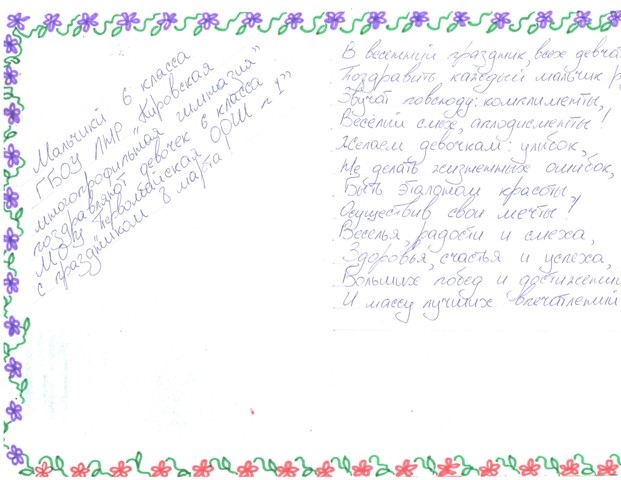 Мальчики 6 класса
ГБОУ ЛНР "Кировская
многопрофильная гимназия"
поздравляют девочек 6 класса
МОУ Первомайская ООШ №1"
с праздником 8 марта!
В весенний праздник, всех девчат
Поздравить каждый мальчик р
Звучат повсюду: комплименты,
Весёлый смех, аплодисменты!
Желаем девочкам: улыбок,
Не делать жизненных ошибок,
Быть эталоном красоты,
Осуществив свои мечты!
Веселья, радости и смеха,
Здоровья, счастья и успеха,
Больших побед и достижений
И массу лучших впечатлений